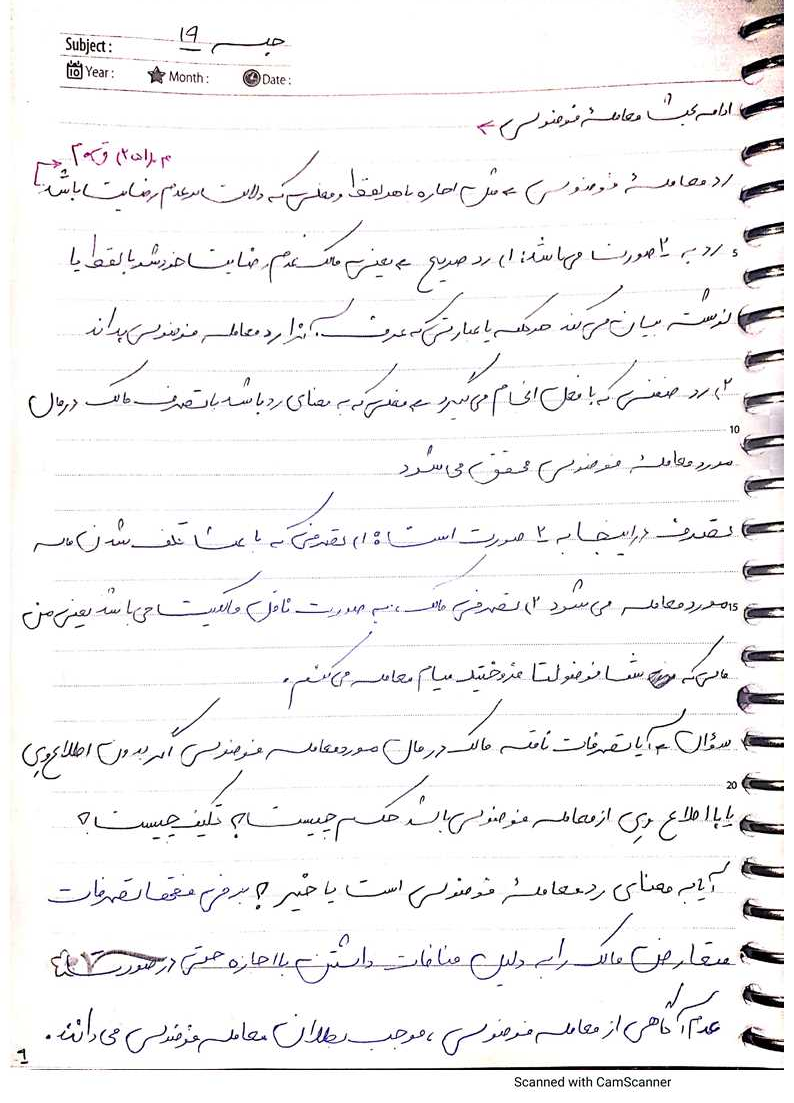 Subject : جلسه ۱۹
Year : Month : Date :
ادامه بحث معامله فضولی ←
م. (۲۵۱) ق.م
رد معاملهٔ فضولی ← مثل اجازه با هر لفظ و فعلی که دلالت بر عدم رضایت باشد
رد به ۲ صورت می‌باشد: ۱) رد صریح ← یعنی مالک عدم رضایت خود را با لفظ یا
نوشته بیان می‌کند هر کلمه یا عبارتی که عرف آنرا رد معامله فضولی بداند
۲) رد ضمنی که با فعل انجام می‌گیرد ← فعلی که به معنای رد باشد با تصرف مالک در مال
10
مورد معامله فضولی محقق می‌شود
تصرف در اینجا به ۲ صورت است: ۱) تصرفی که باعث تلف شدن مال
15 مورد معامله می‌شود ۲) تصرفی مالک به صورت ناقل مالکیت می‌باشد یعنی من
مالی که شما فضولتا فروختید میام معامله می‌کنم.
سؤال ← آیا تصرفات مالک در مال مورد معامله فضولی اگر بدون اطلاع وی
20
یا با اطلاع وی از معامله فضولی باشد حکم چیست؟ تکلیف چیست؟
آیا به معنای رد معاملهٔ فضولی است یا خیر؟ برخی فقها تصرفات
متعارض مالک را به دلیل منافات داشتن با اجازه حتی در صورت
عدم آگاهی از معامله فضولی، موجب بطلان معامله فضولی می‌دانند.
1
Scanned with CamScanner